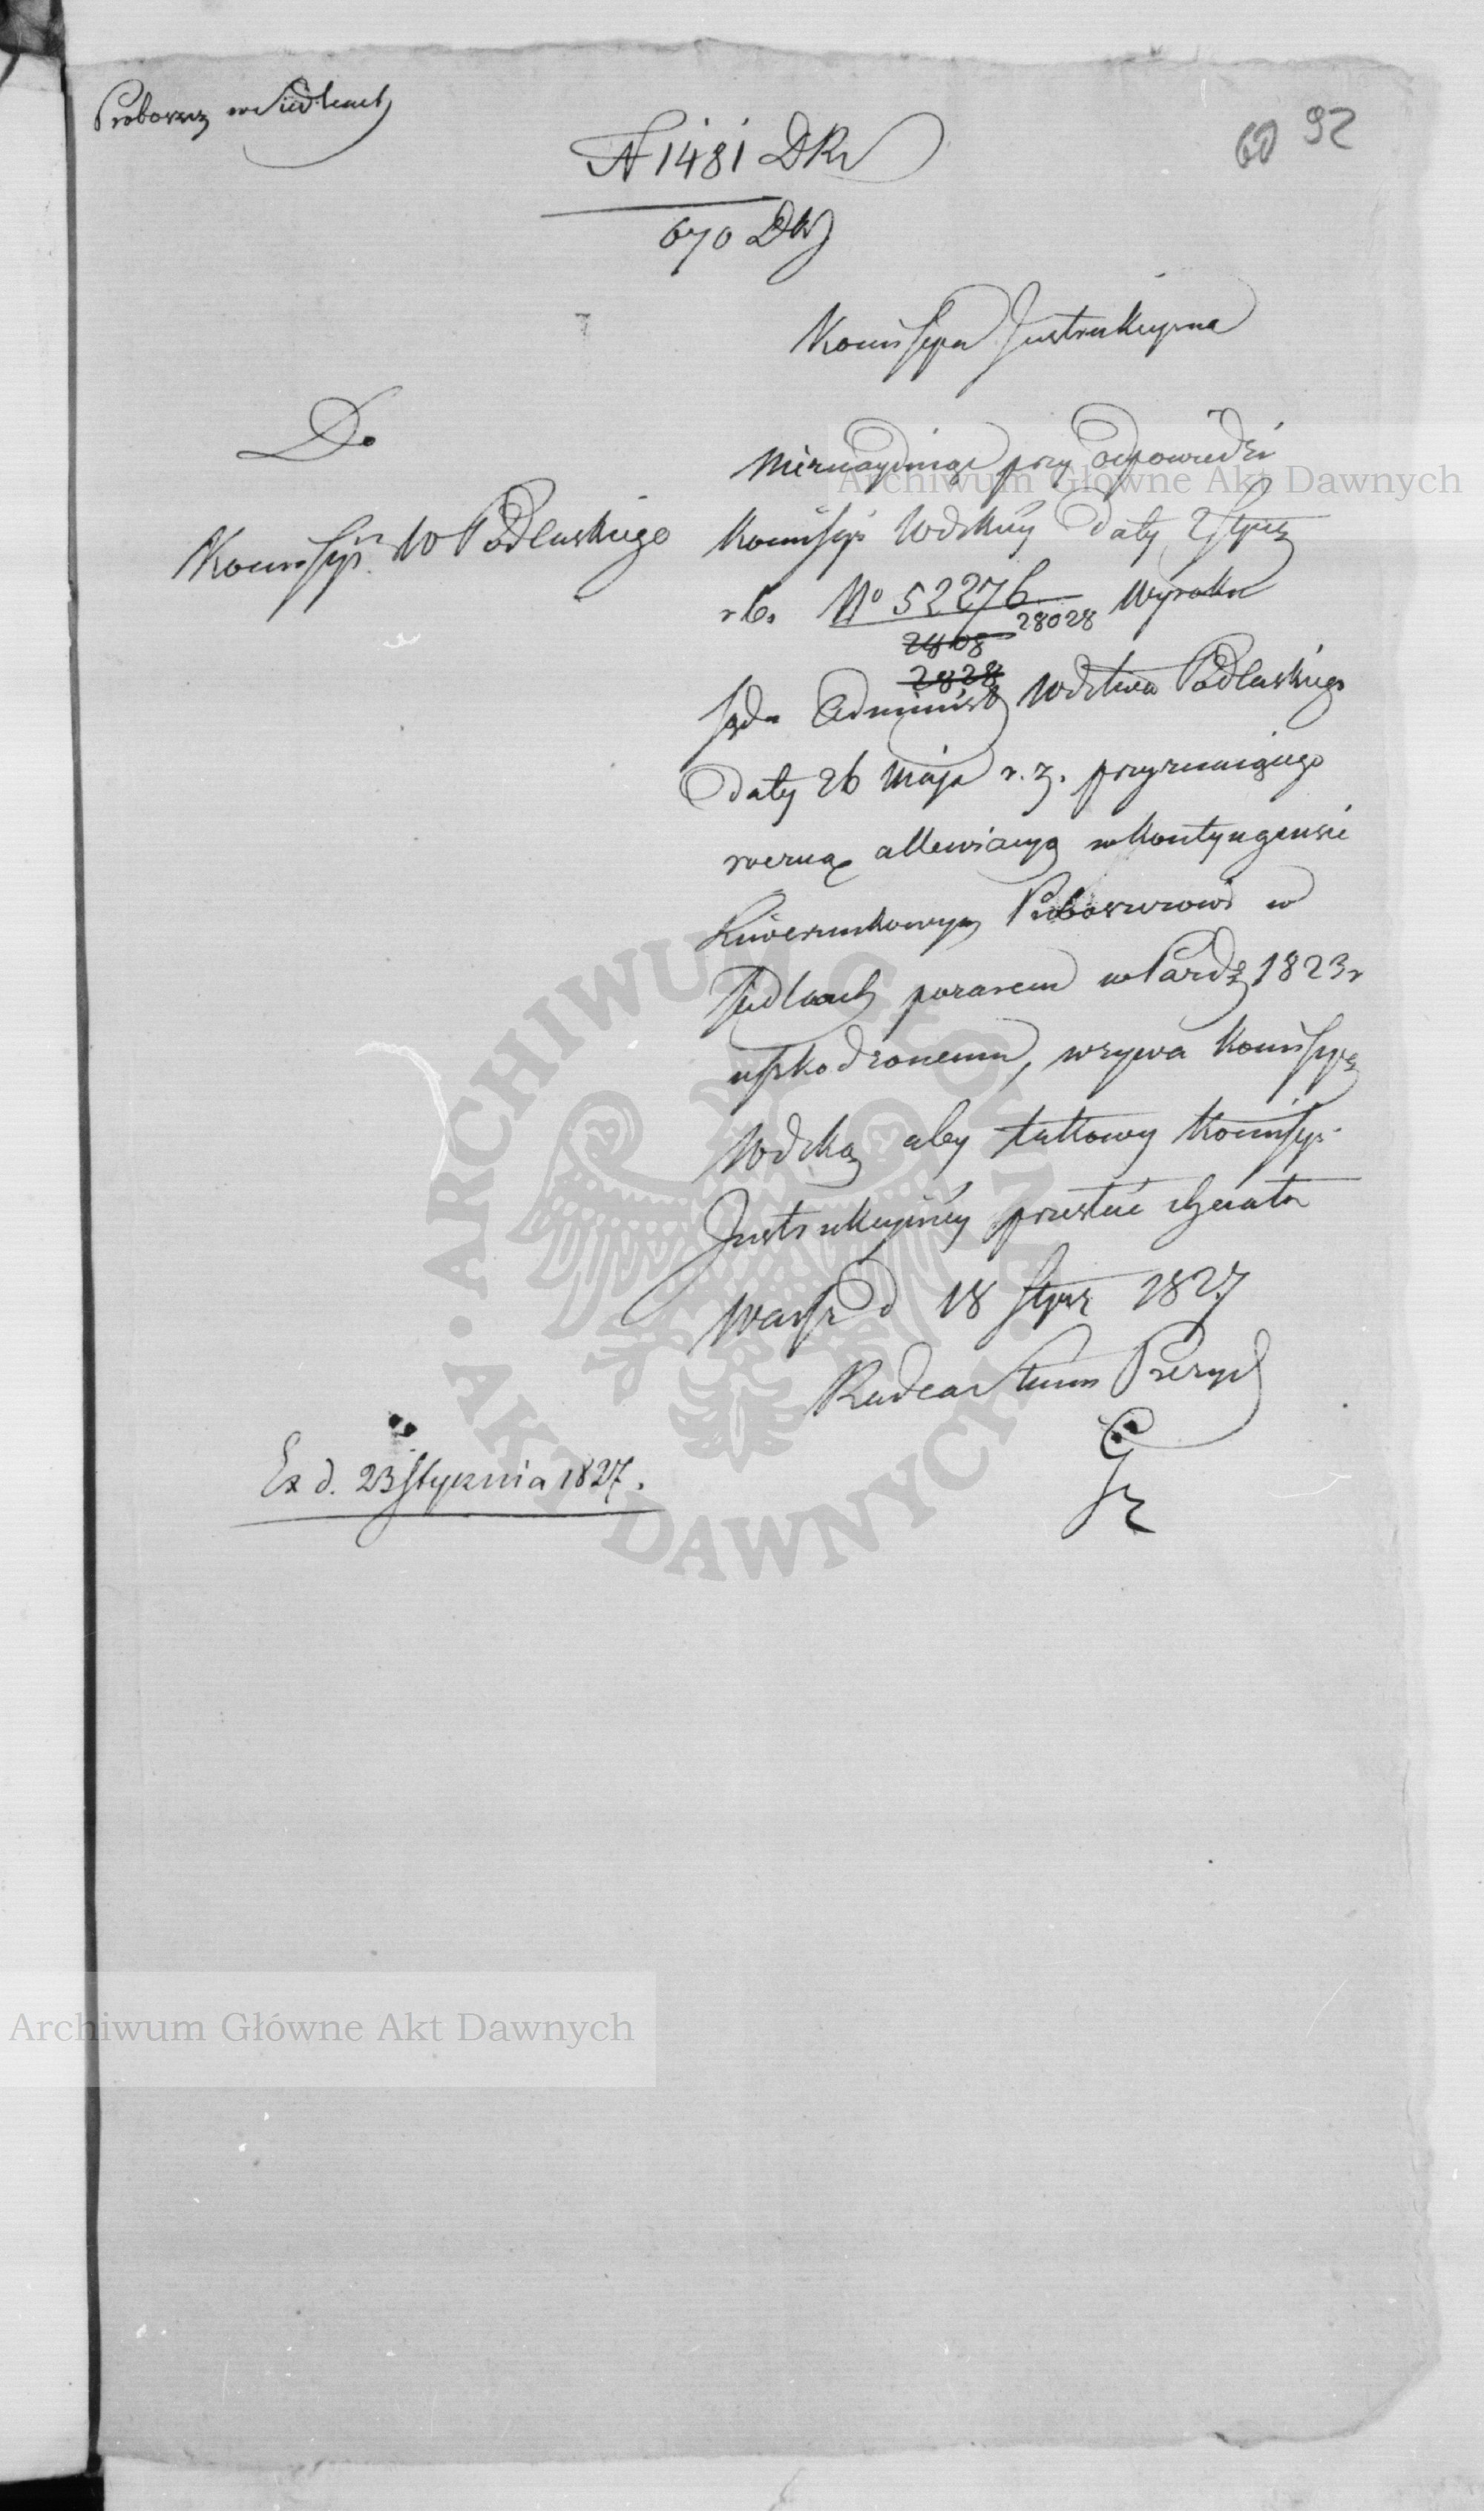 Proboszcz w Siedlcach
60 92
N 1481 DKr
670 DW
Kommissya Instrukcyjna
Do
Kommissyi W Podlaskiego
Nieznayduiąc przy odpowiedzi
Kommissyi Wdzkiey daty 2 Stycz
r b. No 52276 Wyroku
28028
2808
2828
Sądu Administ Wdztwa Podlaskiego
daty 26 Maja r. z. przyznaiącego
roczną allewiacyą w kontyngensie
Liwerunkowym Proboszczowi w
Siedlcach pożarem w Paźdz 1823 r
uszkodzonemu, wzywa Kommissyę
Wdzką aby takowy Kommissyi
Instrukcyiney przesłać chciała
Warsz d 18 Stycz 1827
Radca Stanu Prezyd
Ex d. 23 Stycznia 1827.
Archiwum Główne Akt Dawnych
Archiwum Główne Akt Dawnych
ARCHIWUM GŁÓWNE AKT DAWNYCH